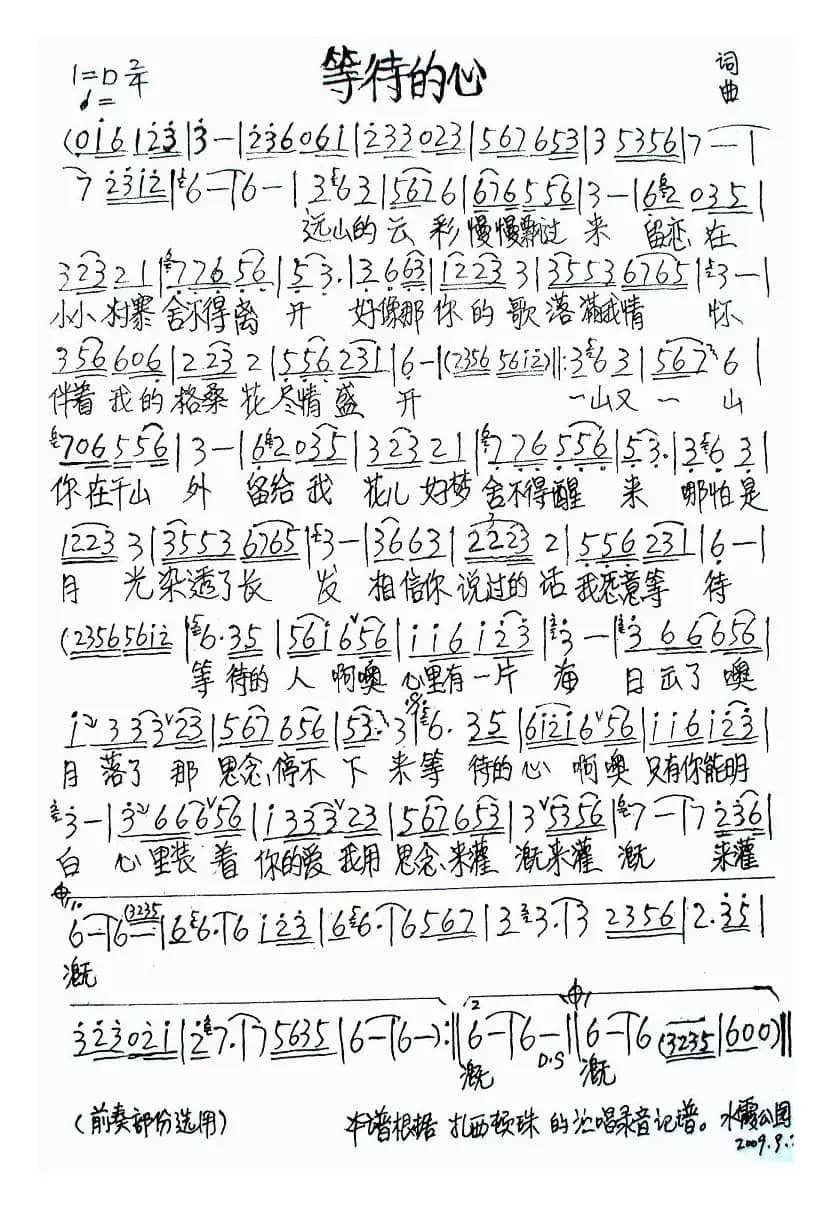 等待的心
1=D 2/4
词
曲
(0i6 1 2 3|3—|236061|233023|567653|3 5356|7—|
7 2312|6—|6—|3 6 3|567 6|676 556|3—|6 2 035|
远山的云彩慢慢飘过来 留恋在
3 23 2 1|776 56|5 3.|3 663|1223 3|3553 6765|3—|
小小村寨舍不得离开 好像那你的歌落满我情怀
3 56 606|2 23 2|556 231|6—|(2356 5612)||:3 6 3|567 6|
伴着我的格桑花尽情盛开 一山又一山
706 556|3—|6 2 035|3 23 2 1|776 556|5 3.|3 6 3|
你在千山外 留给我花儿好梦舍不得醒来 哪怕是
1223 3|3553 6765|3—|3663|2223 2|556 231|6—|
月光染透了长发 相信你说过的话我愿意等待
(23565612|6. 35|56i 656|ii6 i23|3—|3 66656|
等待的人啊噢心里有一片海 日出了噢
i 33323|567 656|53. 3|6. 35|6i2i656|ii6i23|
月落了那思念,停不下来等待的心啊噢只有你能明
3—|3 66656|i 33323|567 653|3 5356|7—|7 236|
白 心里装着你的爱我用思念来灌溉来灌溉 来灌
6—|6 (3235|6 6.|6 i23|6 6.|6 567|3 3.|3 2356|2. 35|
溉
323021|2 7.|7 5635|6—|6—):||6—|6—||6—|6 (3235|600)||
D.S
溉 溉
(前奏部份选用) 本谱根据 扎西顿珠 的演唱录音记谱。水霞公园
2009.9.